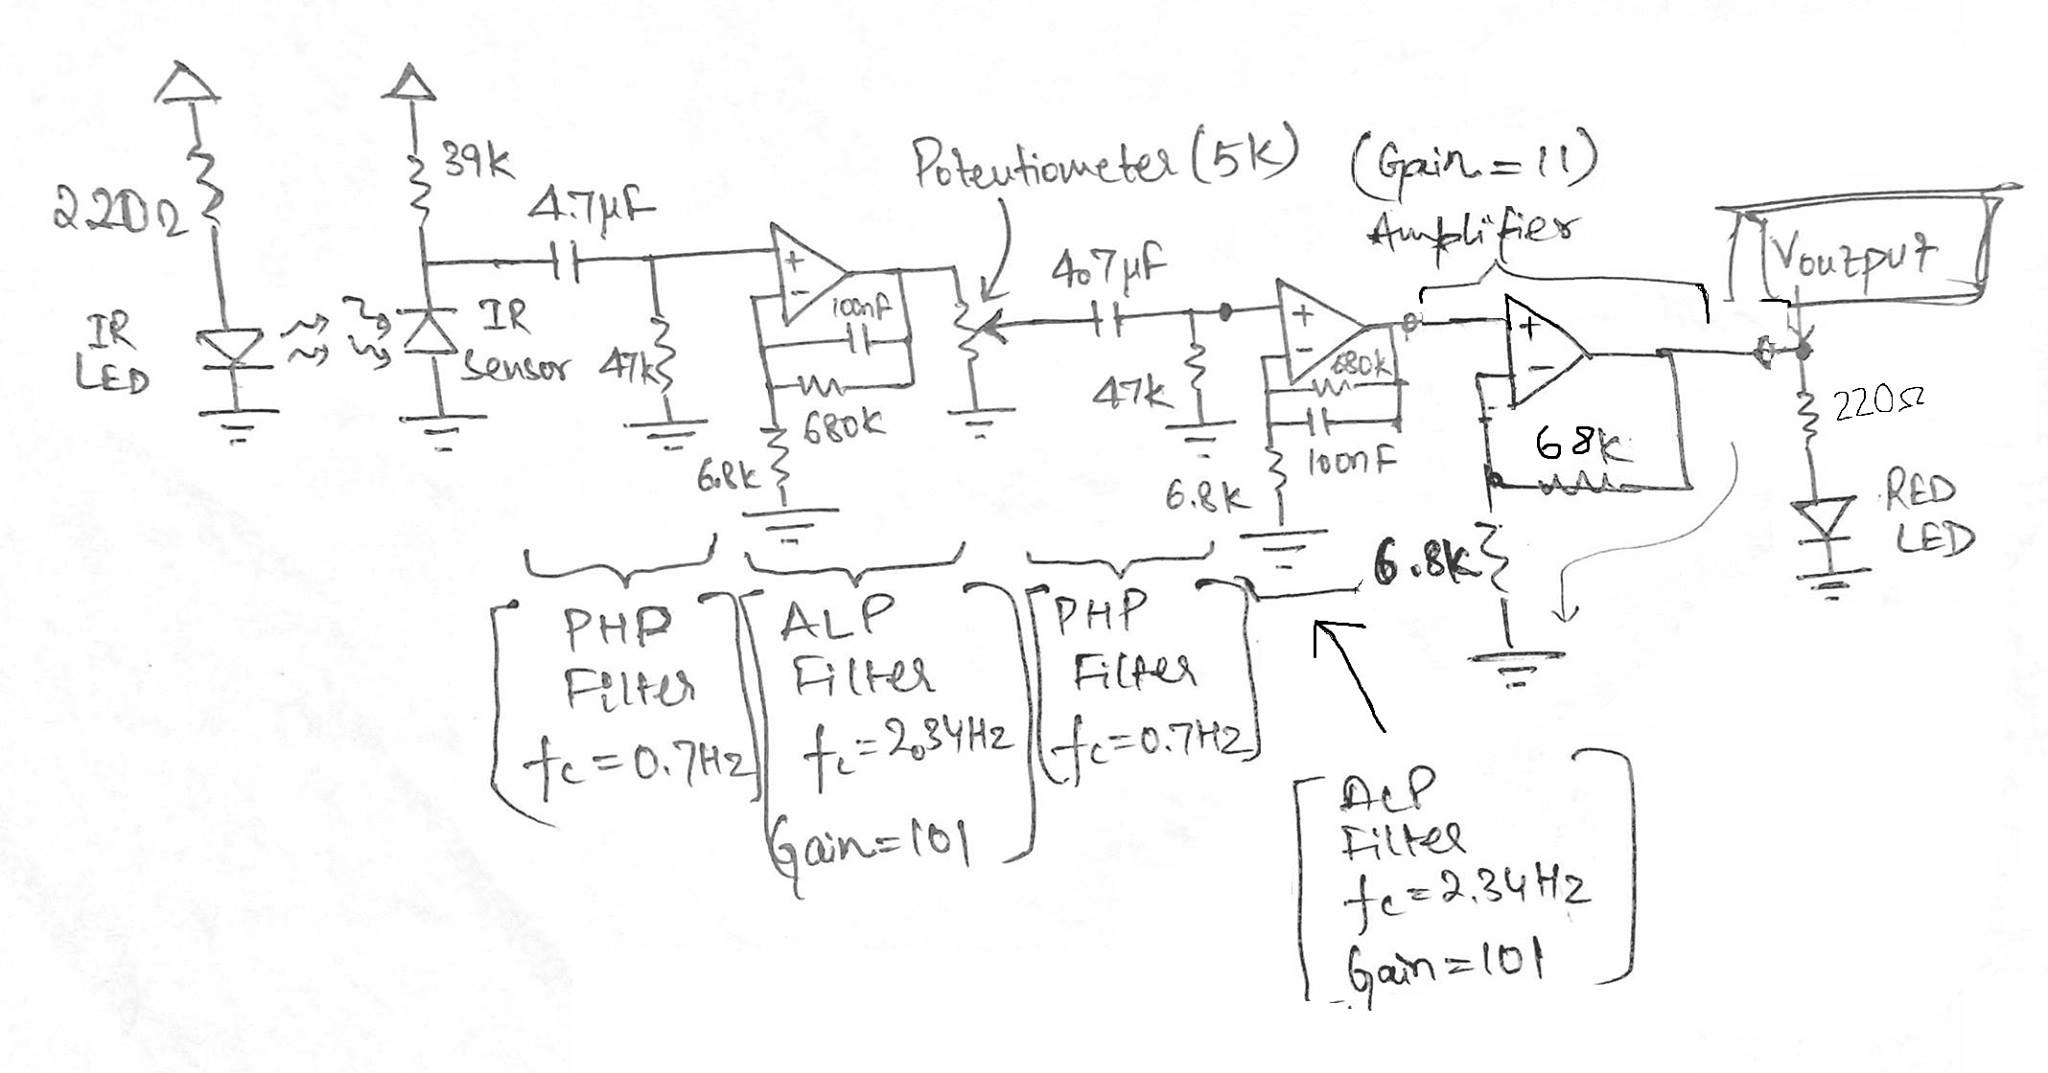 220Ω
IR
LED
39k
4.7µF
IR
Sensor
47k
+
-
100nF
680k
6.8k
Potentiometer (5K)
4.7µF
47k
+
-
680k
100nF
6.8k
(Gain = 11)
Amplifier
+
-
68k
6.8k
Voutput
220Ω
RED
LED
PHP
Filter
fc = 0.7Hz
ALP
Filter
fc = 2.34Hz
Gain = 101
PHP
Filter
fc = 0.7Hz
ALP
Filter
fc = 2.34Hz
Gain = 101